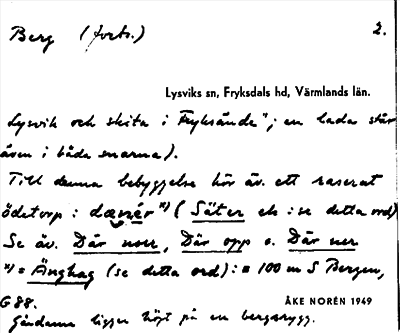 Berg (forts.)
2.
Lysviks sn, Fryksdals hd, Värmlands län.
Lysvik och skita i Fryksände"; en lada står
även i båda snarna).
Till denna bebyggelse hör äv. ett raserat
ödetorp: dænér *) (Säter el: se detta ord)
Se äv. Där norr, Där opp o. Där ner
*) = Änghag (se detta ord): = 100 m S Bergen,
G 88.
ÅKE NORÉN 1949
Gårdarna ligger högt på en bergsrygg.